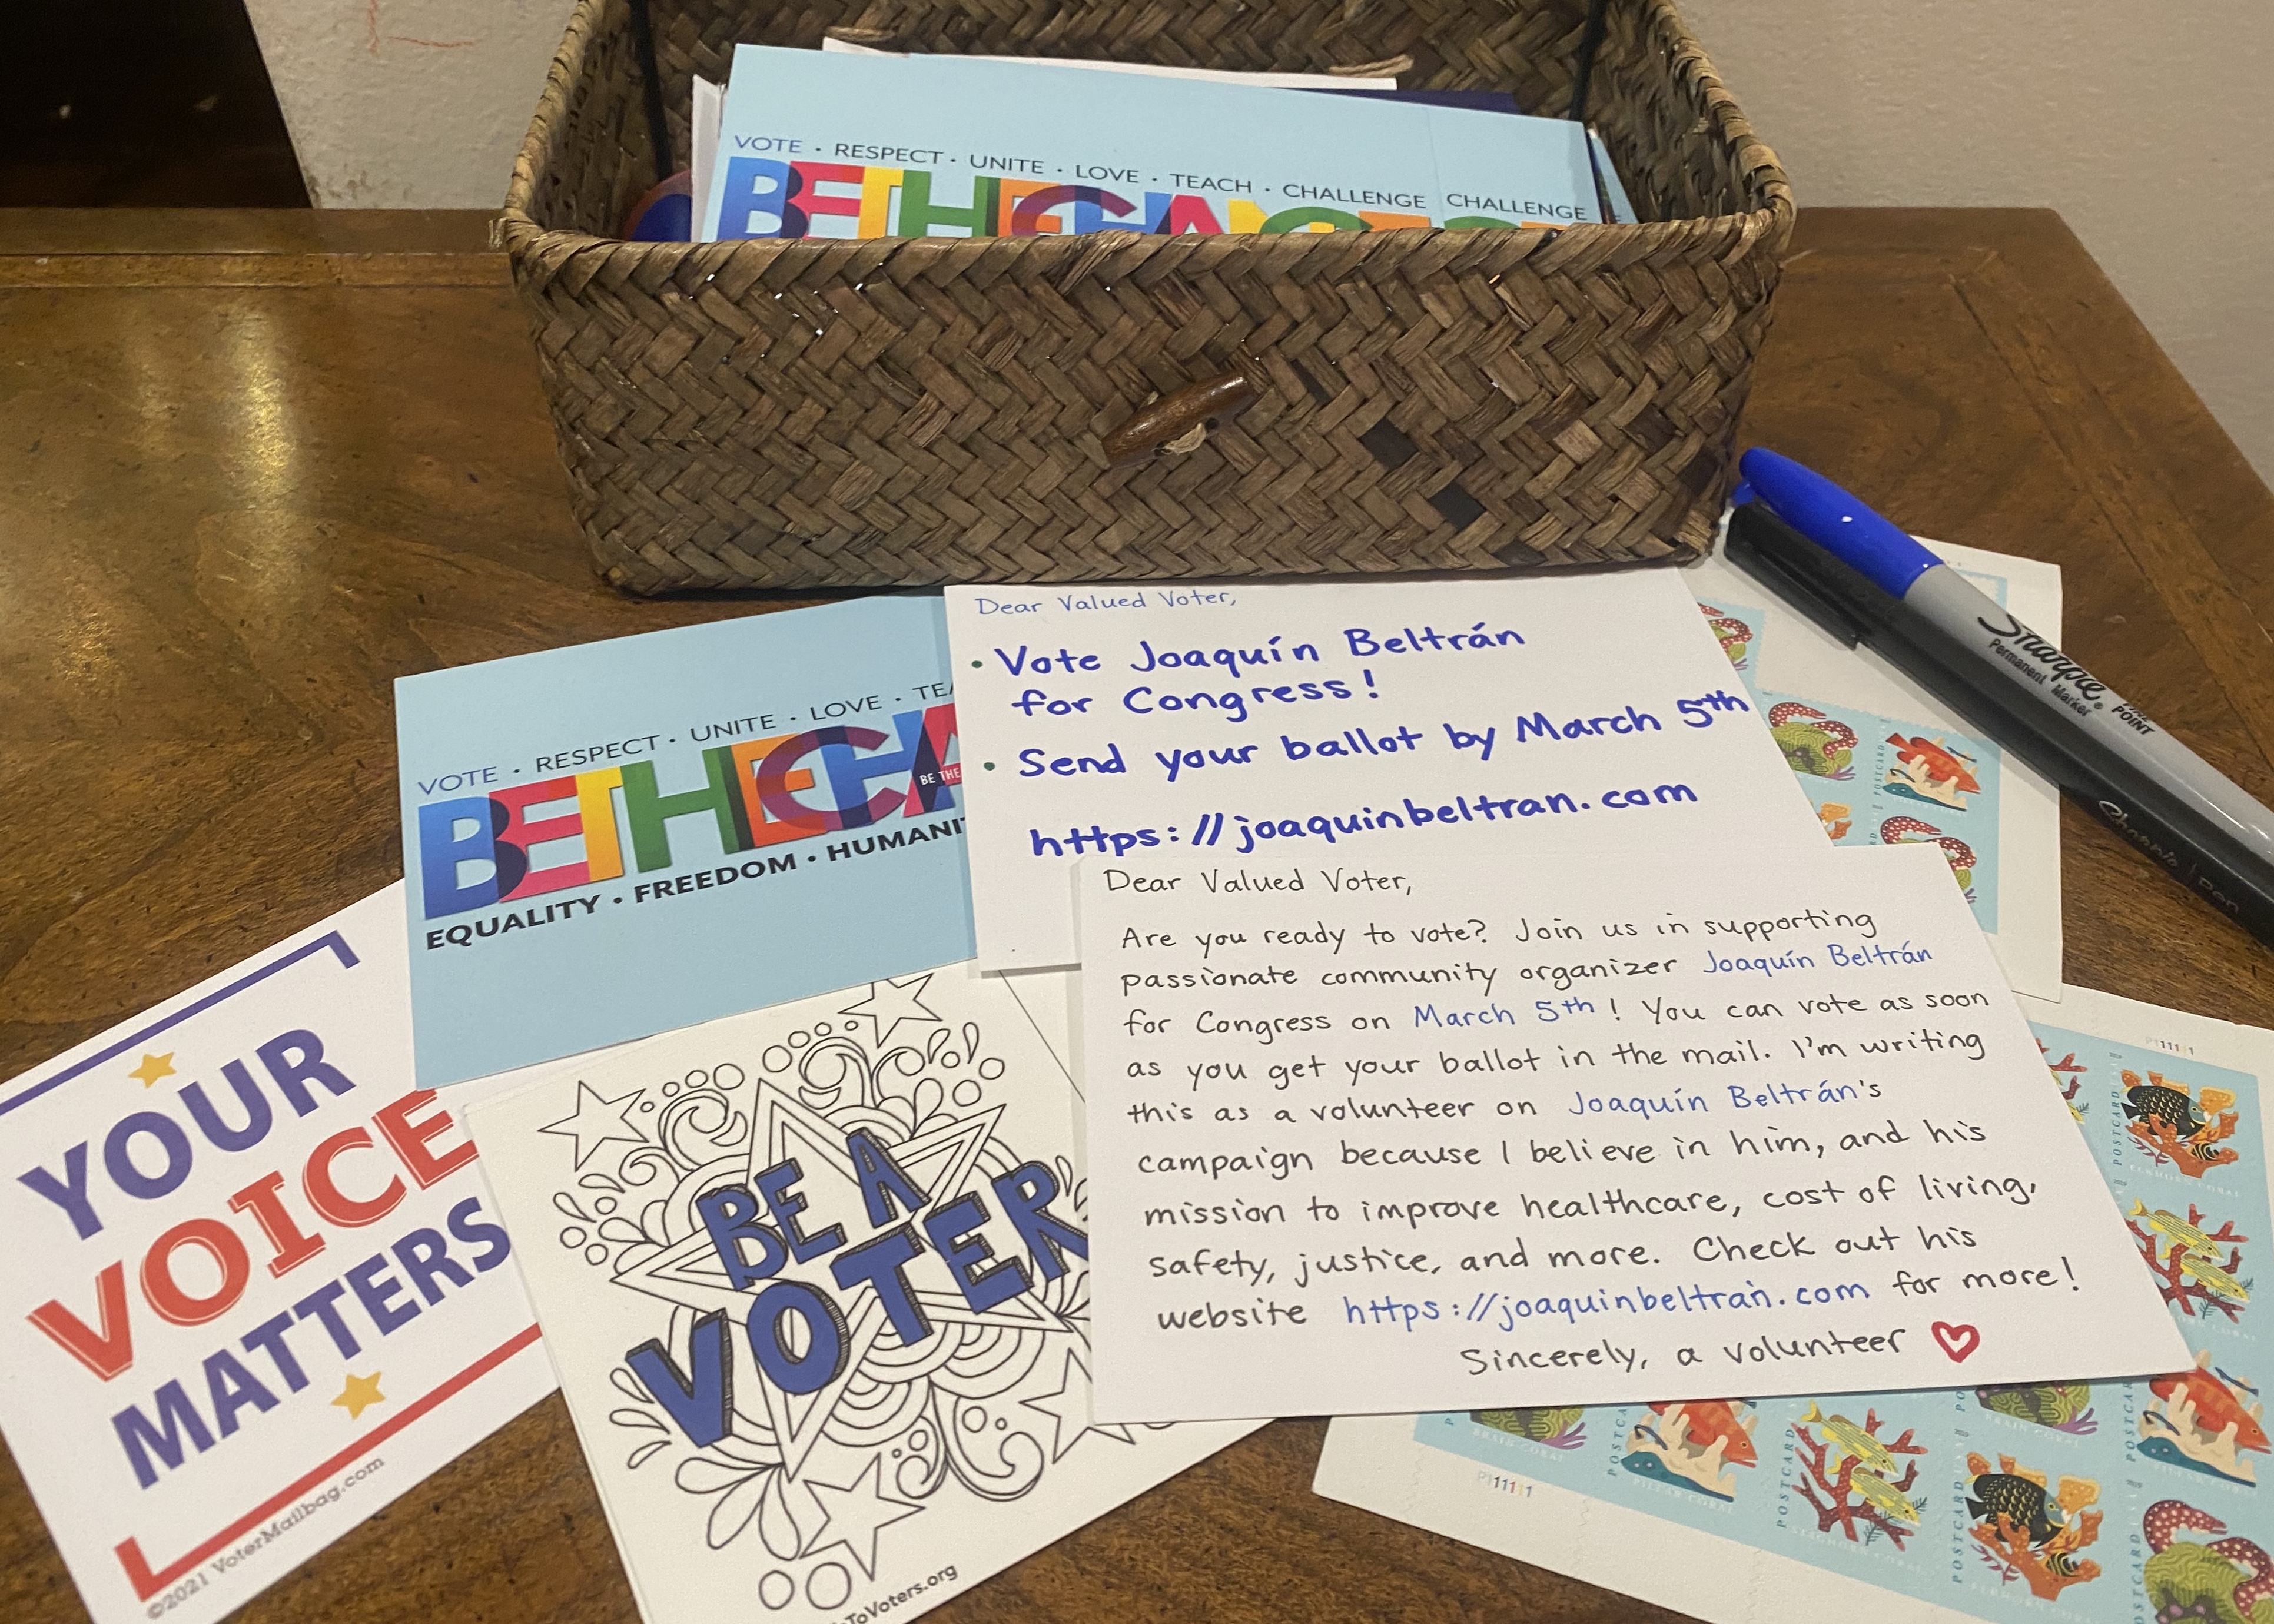 VOTE · RESPECT · UNITE · LOVE · TEACH · CHALLENGE CHALLENGE
BE THE
VOTE · RESPECT · UNITE · LOVE ·
BE THE
BE THE
EQUALITY · FREEDOM ·
Dear Valued Voter,
• Vote Joaquín Beltrán
for Congress!
• Send your ballot by March 5th
https://joaquinbeltran.com
Dear Valued Voter,
Are you ready to vote? Join us in supporting
passionate community organizer Joaquín Beltrán
for Congress on March 5th! You can vote as soon
as you get your ballot in the mail. I'm writing
this as a volunteer on Joaquín Beltrán's
campaign because I believe in him, and his
mission to improve healthcare, cost of living,
safety, justice, and more. Check out his
website https://joaquinbeltran.com for more!
Sincerely, a volunteer
YOUR
VOICE
MATTERS
©2021 VoterMailbag.com
BE A
VOTER
ToVoters.org
Sharpie®
Permanent Marker
POINT
P11111
POSTCARD
POSTCARD
POSTCARD
POSTCARD
BRAIN CORAL
PILLAR CORAL
STAGHORN CORAL
P11111